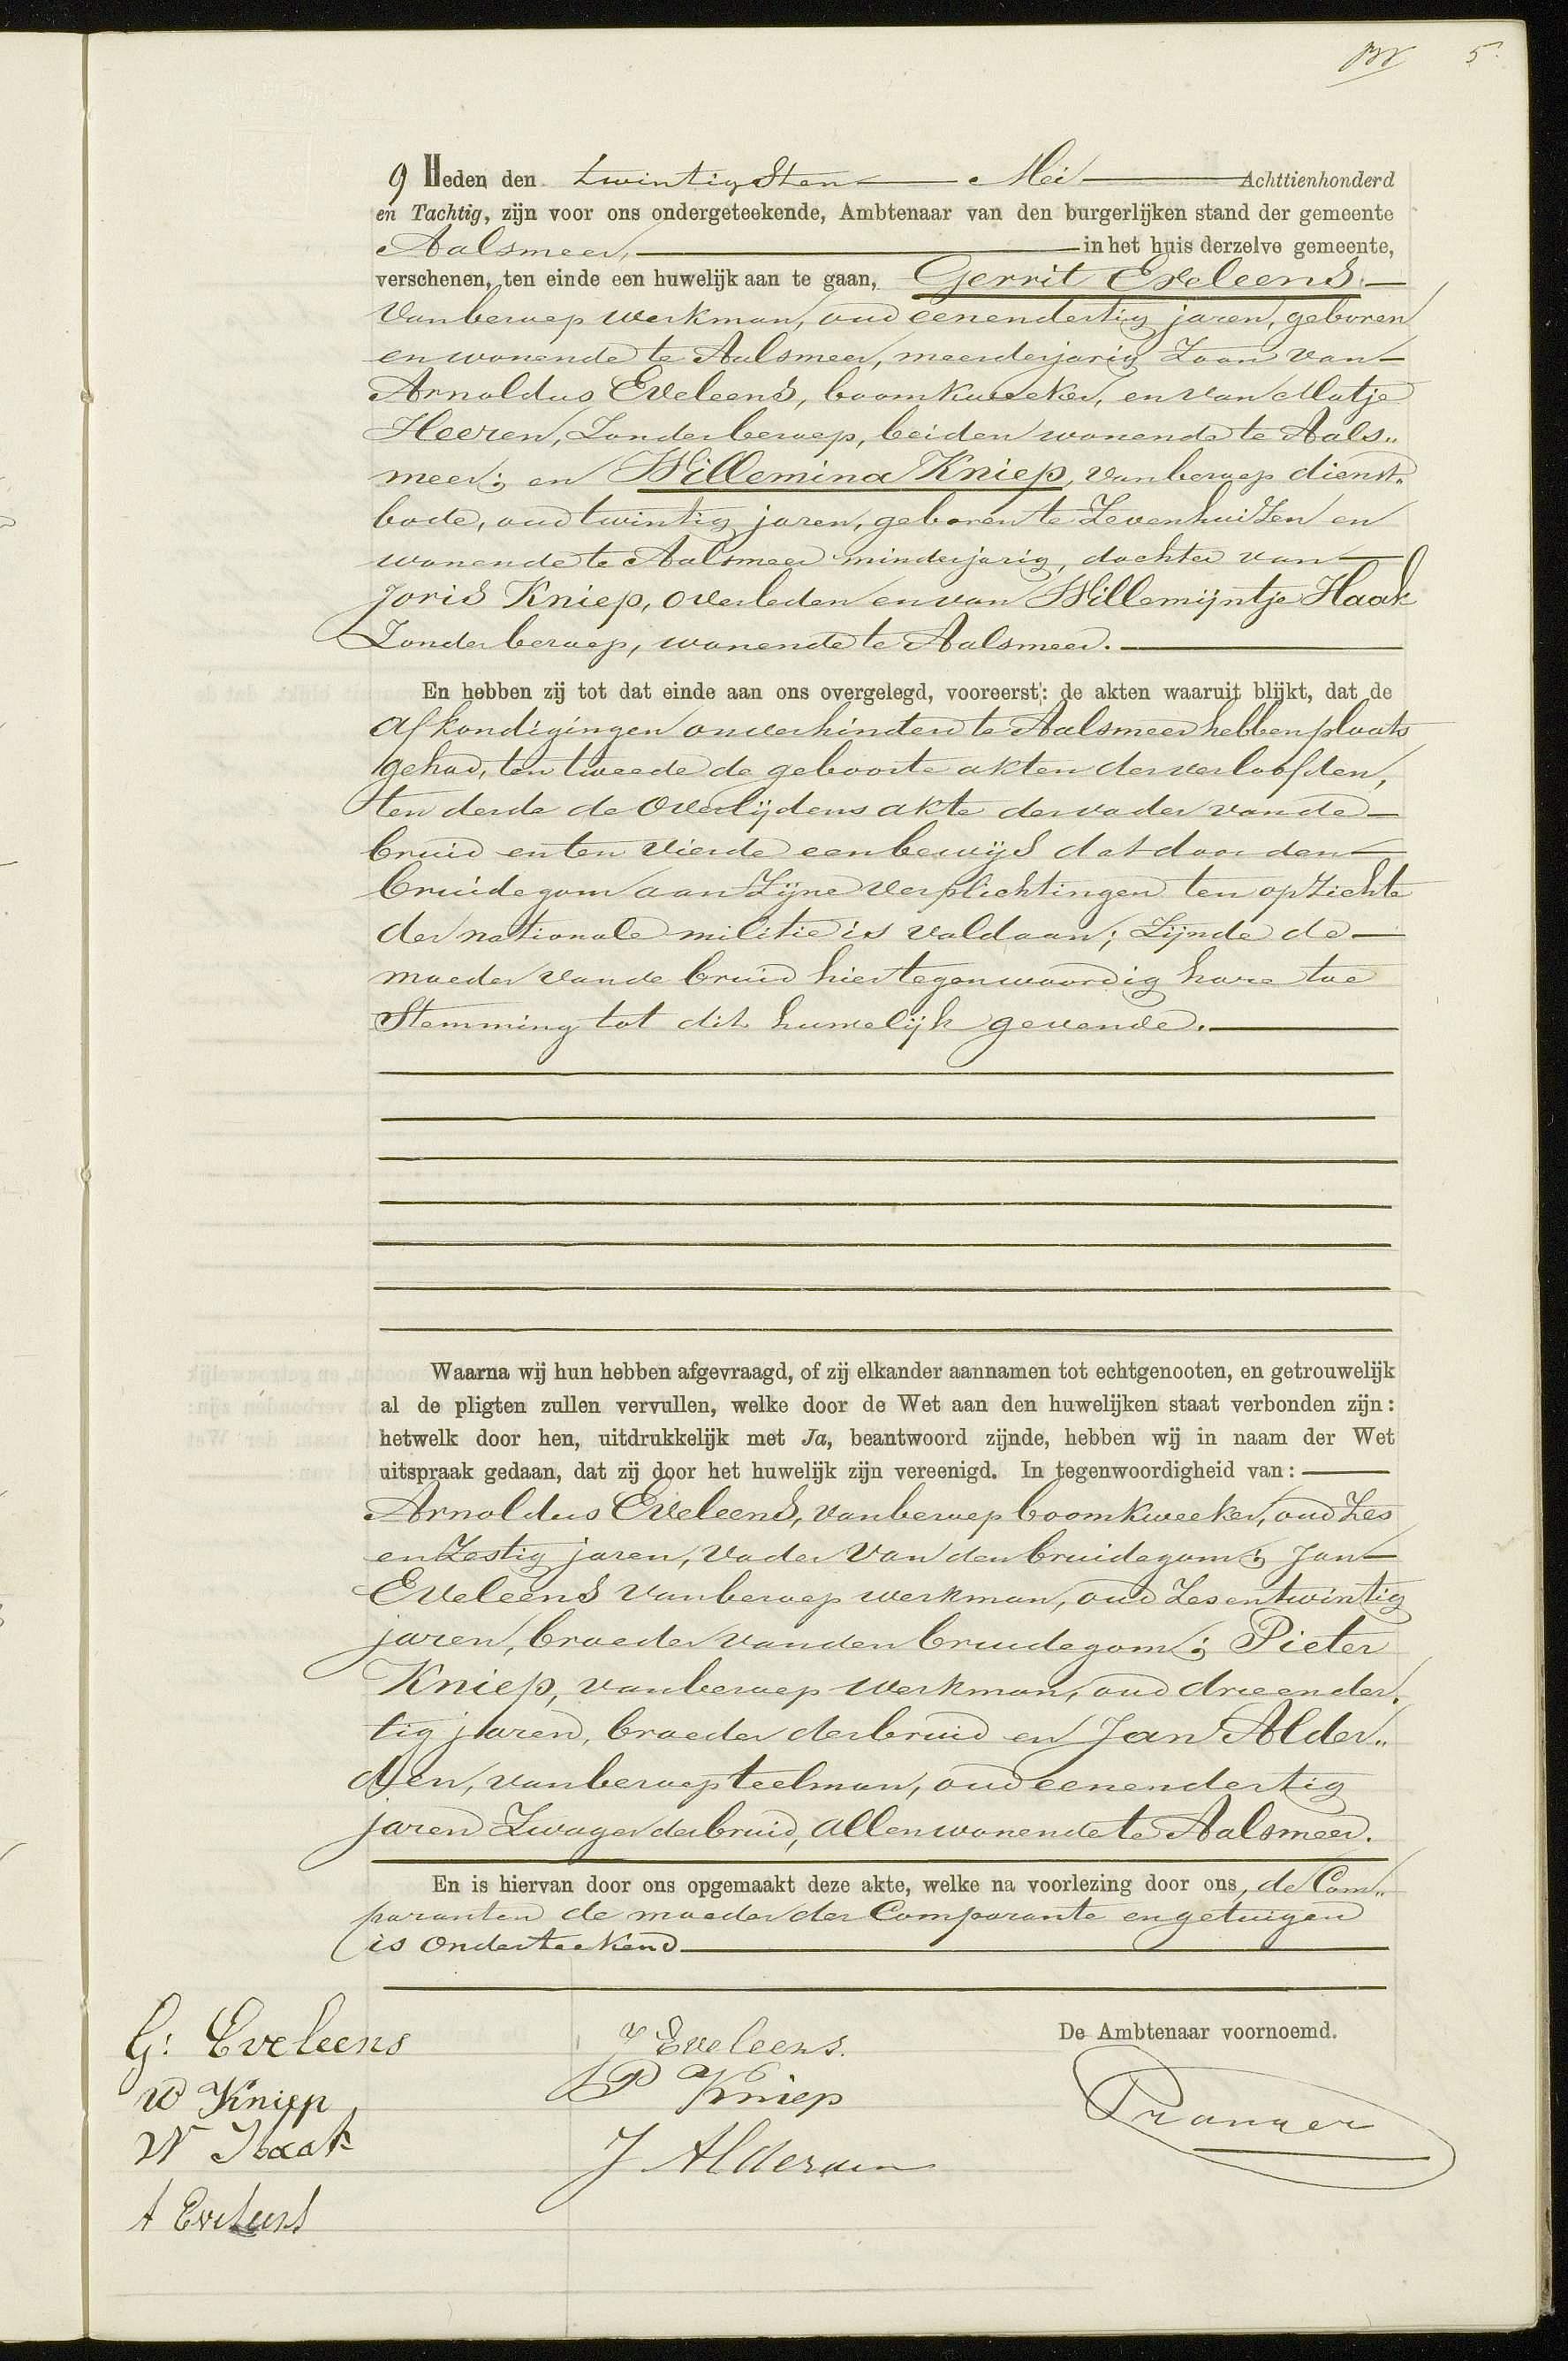 5
9 Heden den twintigsten Mei Achttienhonderd
en Tachtig, zijn voor ons ondergeteekende, Ambtenaar van den burgerlijken stand der gemeente
Aalsmeer, in het huis derzelve gemeente,
verschenen, ten einde een huwelijk aan te gaan, Gerrit Eveleens
van beroep werkman, oud eenendertig jaren, geboren
en wonende te Aalsmeer, meerderjarig Zoon van
Arnoldus Eveleens, boomkweeker, en van Matje
Heeren, Zonder beroep, beiden wonende te Aals„
meer; en Willemina Kniep, van beroep dienst„
bode, oud twintig jaren, geboren te Zevenhuizen en
wonende te Aalsmeer minderjarig, dochter van
Joris Kniep, overleden en van Willemijntje Haak
Zonder beroep, wonende te Aalsmeer.
En hebben zij tot dat einde aan ons overgelegd, vooreerst: de akten waaruit blijkt, dat de
afkondigingen onverhinderd te Aalsmeer hebben plaats
gehad, ten tweede de geboorte akten der verloofden,
ten derde de Overlijdens akte der vader van de
bruid en ten vierde een bewijs dat door den
bruidegom aan Zijne verplichtingen ten opzichte
der nationale militie is voldaan; Zijnde de
moeder van de bruid hier tegenwoordig hare toe
stemming tot dit huwelijk gevende.
Waarna wij hun hebben afgevraagd, of zij elkander aannamen tot echtgenooten, en getrouwelijk
al de pligten zullen vervullen, welke door de Wet aan den huwelijken staat verbonden zijn:
hetwelk door hen, uitdrukkelijk met Ja, beantwoord zijnde, hebben wij in naam der Wet
uitspraak gedaan, dat zij door het huwelijk zijn vereenigd. In tegenwoordigheid van:
Arnoldus Eveleens, van beroep boomkweeker, oud Zes
en Zestig jaren, Vader van den bruidegom; Jan
Eveleens van beroep werkman, oud Zesentwintig
jaren, broeder van den bruidegom; Pieter
Kniep, van beroep werkman, oud drieender„
tig jaren, broeder der bruid en Jan Alder„
den, van beroep teelman, oud eenendertig
jaren Zwager der bruid, allen wonende te Aalsmeer.
En is hiervan door ons opgemaakt deze akte, welke na voorlezing door ons, de Com„
paranten de moeder der Comparante en getuigen
is onderteekend
De Ambtenaar voornoemd.
G: Eveleens
J Eveleens.
W Kniep
P Kniep
W Haak
J Alderden
A Eveleens